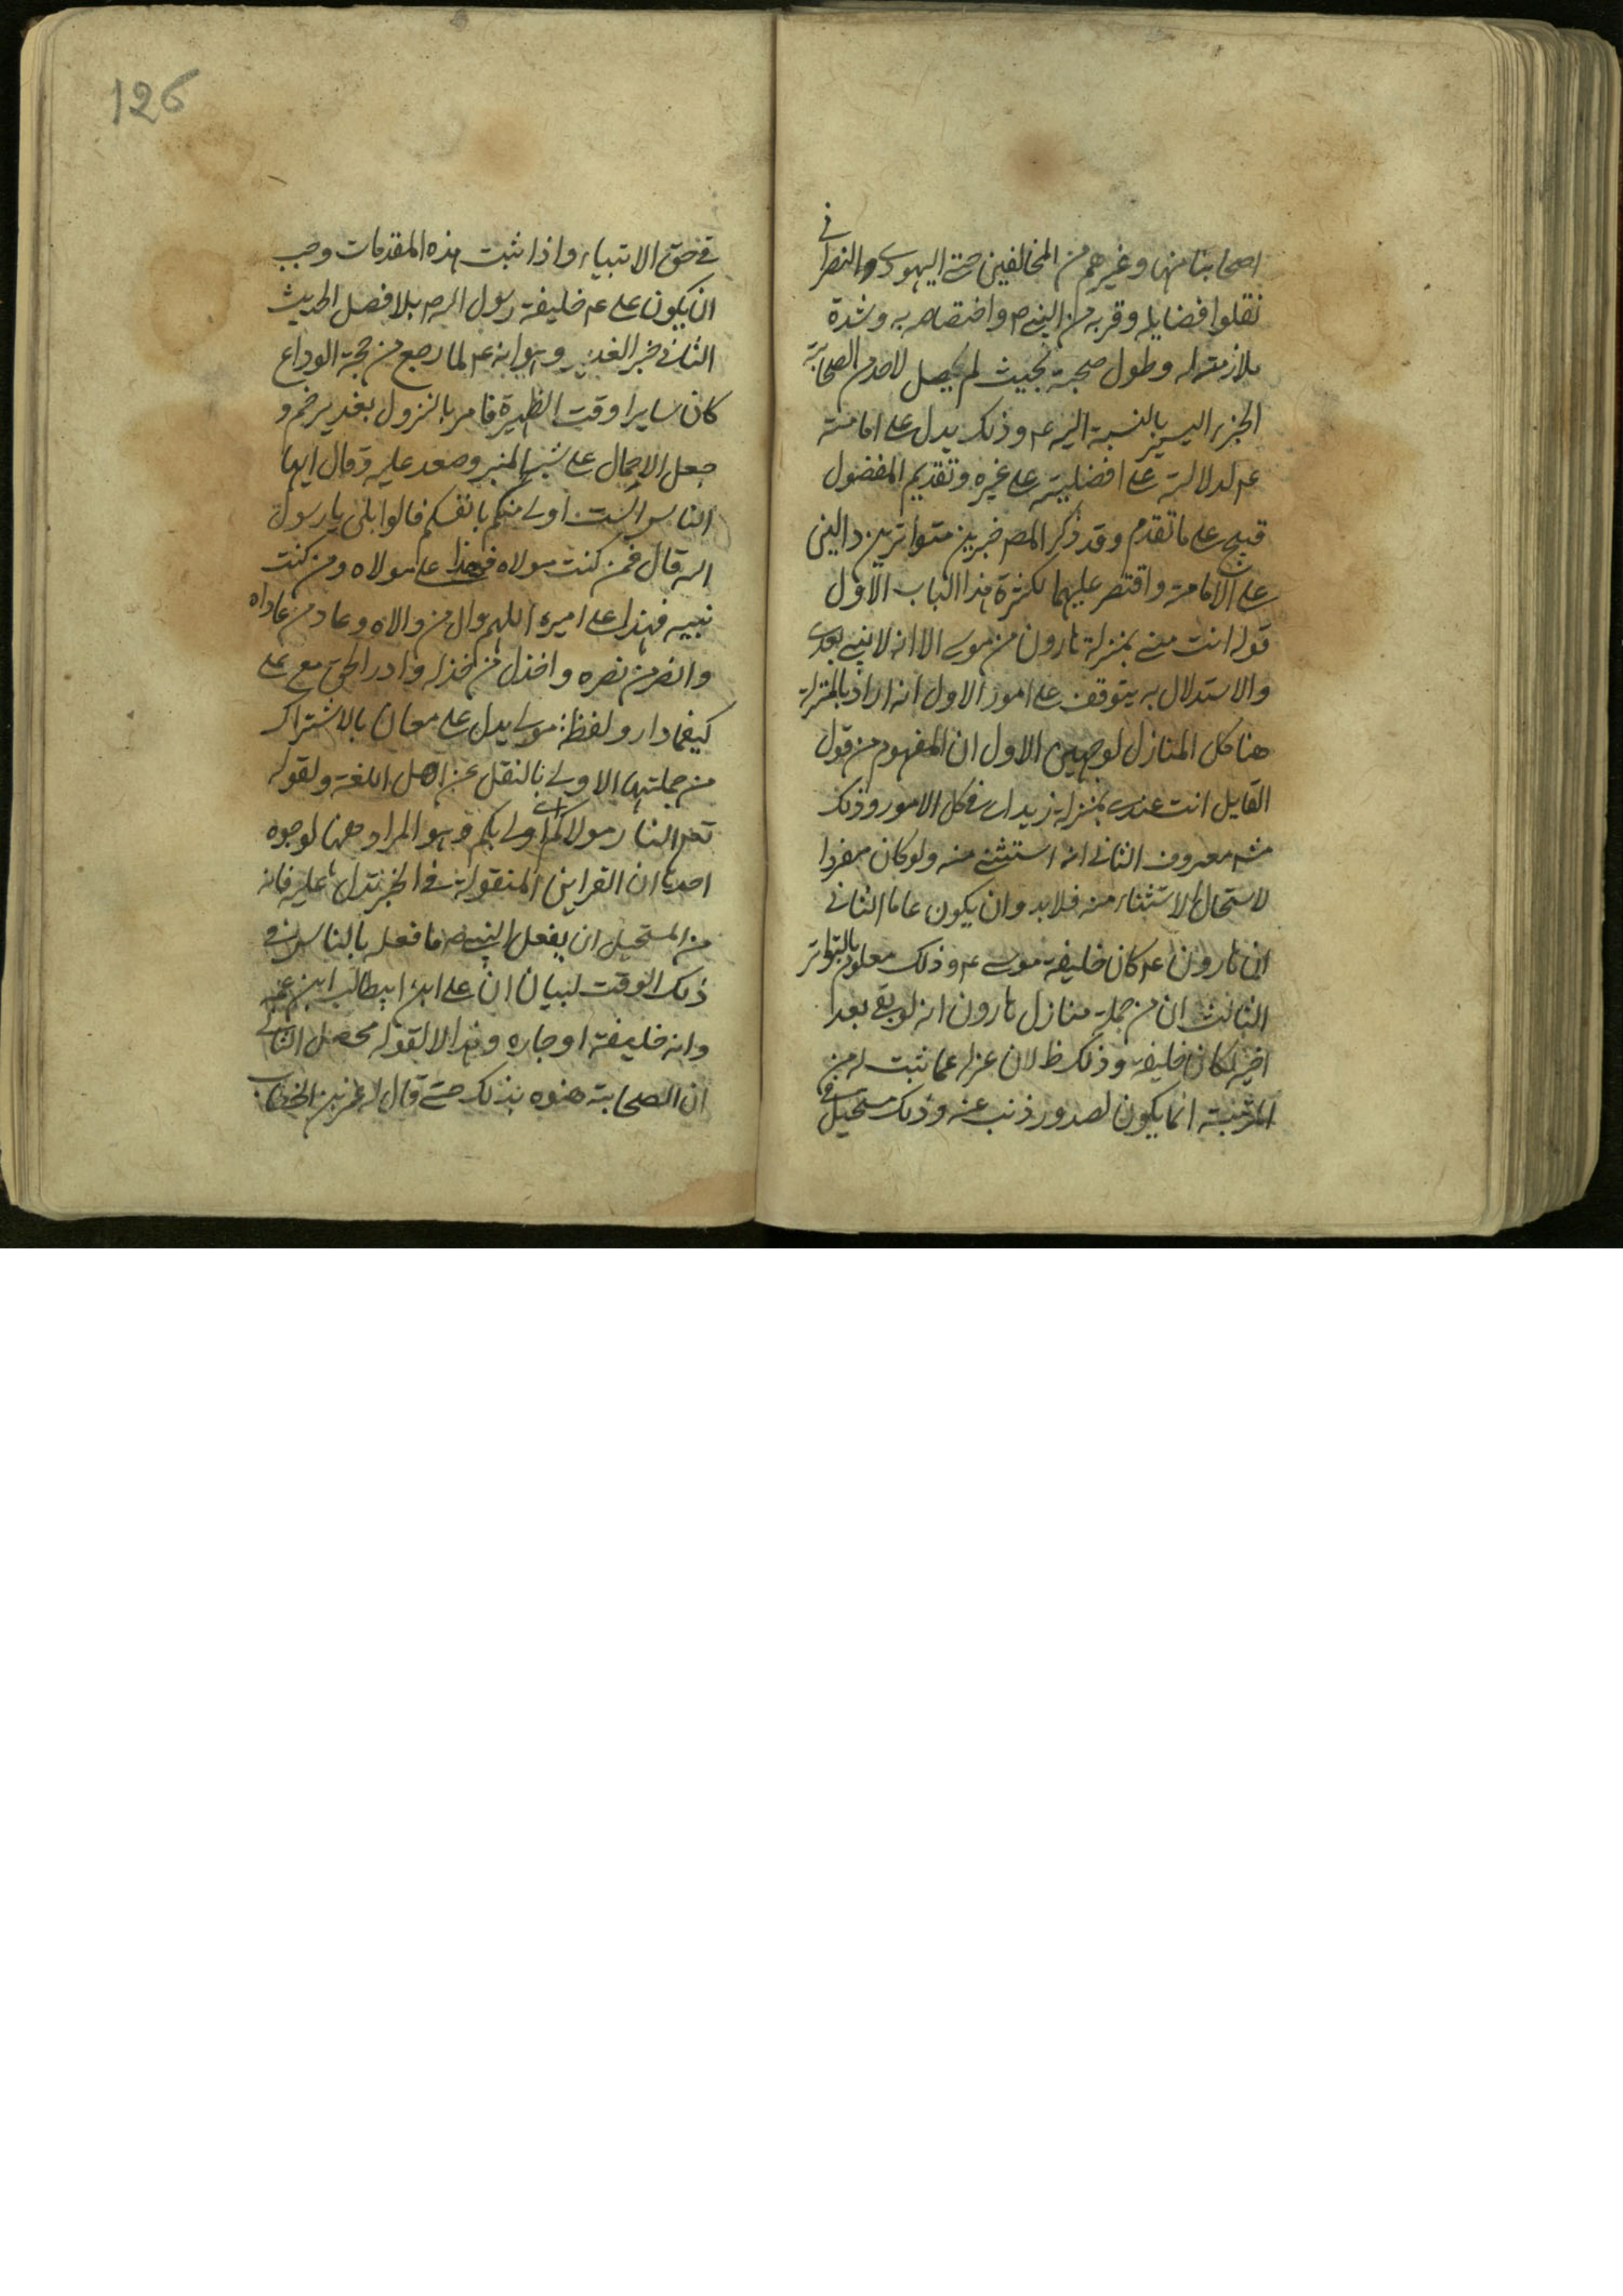 اصحابنا منها وغيرهم من المخالفين حتى اليهودى والنصرانى
نقلوا فضايله وقربه من النبى ص واختصاصه به وشدة
ملازمته له وطول صحبته بحيث لم يحصل لاحد من الصحابة
الجزء اليسير بالنسبة اليه عم وذلك يدل على امامته
عم لدلالته على افضليته على غيره وتقديم المفضول
قبيح على ما تقدم وقد ذكر المص خبرين متواترين دالين
على الامامة واقتصر عليهما لكثرة هذا الباب الاول
قوله انت منى بمنزلة هارون من موسى الا انه لا نبى بعدى
والاستدلال به يتوقف على امور الاول انه اراد بالمنزلة
هنا كل المنازل لوجهين الاول ان المفهوم من قول
القايل انت عندى بمنزلة زيد اى فى كل الامور وذلك
معروف الثانى انه استثنى منه ولو كان مفردا
لاستحال الاستثناء منه فلابد وان يكون عاما الثانى
ان هارون عم كان خليفة موسى عم وذلك معلوم بالتواتر
الثالث ان من جملة منازل هارون انه لو بقى بعد
اخيه لكان خليفة وذلك ظ لان عزله عما ثبت له من
المرتبة انما يكون لصدور ذنب عنه وذلك مستحيل فى
فى حق الانبياء واذا ثبت هذه المقدمات وجب
ان يكون على عم خليفة رسول الله ص بلا فصل الحديث
الثانى خبر الغدير وهو انه عم لما رجع من حجة الوداع
كان سايرا وقت الظهيرة فامر بالنزول بغدير خم و
جعل الاجمال على شبه المنبر وصعد عليه وقال ايها
الناس الست اولى منكم بانفسكم قالوا بلى يا رسول
الله قال فمن كنت مولاه فهذا على مولاه ومن كنت
نبيه فهذا على اميره اللهم وال من والاه وعاد من عاداه
وانصر من نصره واخذل من خذله وادر الحق مع على
كيفما دار ولفظة مولى يدل على معان بالاشتراك
من جملتها الاولى بالنقل عن اهل اللغة ولقوله
تعم النار مولاكم اى اولى بكم وهو المراد ههنا لوجوه
احدها ان القراين المنقولة فى الخبر تدل عليه فانه
من المستحيل ان يفعل النبى ص ما فعل بالناس فى
ذلك الوقت لبيان ان على ابن ابيطالب ابن عمه
وانه خليفته او جاره وهذا الا لقوله محصل الثانى
ان الصحابة هنوه بذلك حتى قال له عمر بن الخطاب
126